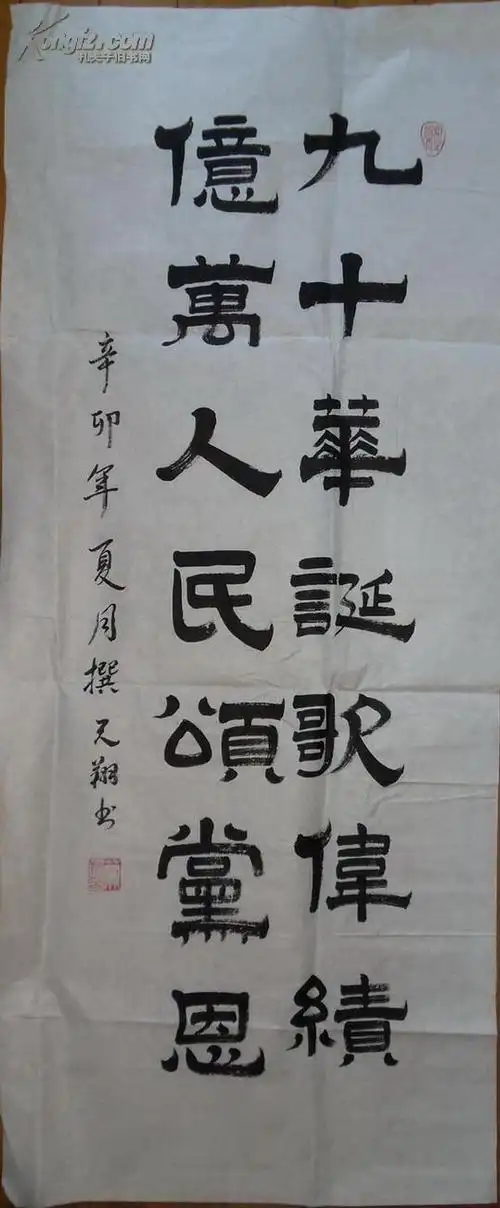 九十華誕歌偉績
億萬人民頌黨恩
辛卯年夏月撰元翔书
Kongfz.com
孔夫子旧书网